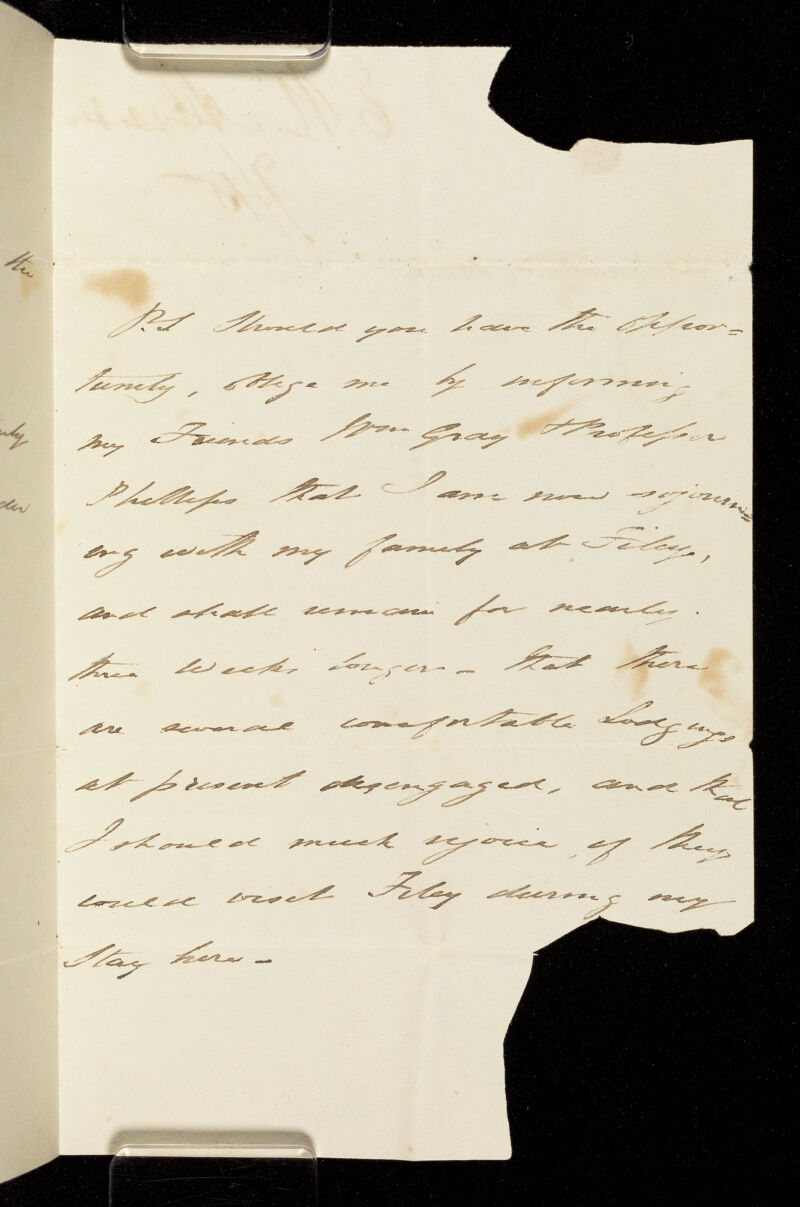 the
P.S Should you have the Oppor=
tunity, oblige me by informing
my Friends Wm Gray & Professor
Phillips that I am now sojourn=
ing with my family at Filey,
and shall remain for nearly
three weeks longer - that there
are several comfortable Lodgings
at present disengaged, and that
I should much rejoice, if they
could visit Filey during my
Stay here -